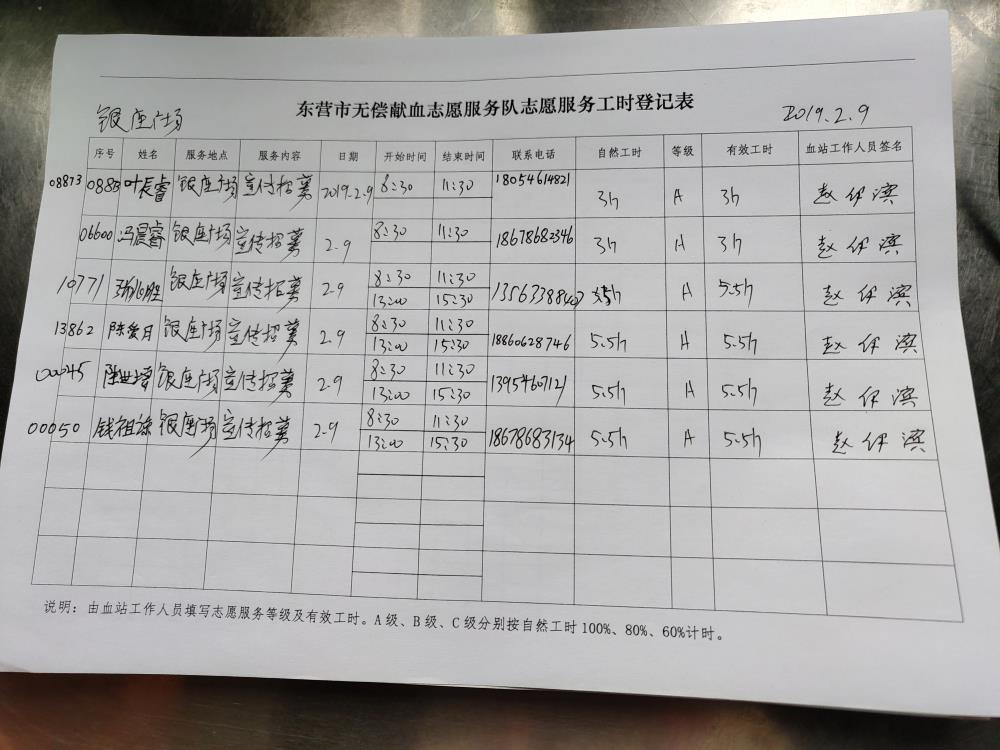 东营市无偿献血志愿服务队志愿服务工时登记表
银座广场 2019.2.9
序号 姓名 服务地点 服务内容 日期 开始时间 结束时间 联系电话 自然工时 等级 有效工时 血站工作人员签名
08873 叶辰睿 银座广场 宣传招募 2019.2.9 8:30 11:30 18054614821 3h A 3h 赵 滨
06600 冯晨睿 银座广场 宣传招募 2.9 8:30 11:30 18678682346 3h A 3h 赵 滨
10771 银座广场 宣传招募 2.9 8:30 11:30 5.5h A 5.5h 赵 滨
13:00 15:30
13862 陈爱月 银座广场 宣传招募 2.9 8:30 11:30 18860628746 5.5h A 5.5h 赵 滨
13:00 15:30
00045 银座广场 宣传招募 2.9 8:30 11:30 13954607121 5.5h A 5.5h 赵 滨
13:00 15:30
00050 钱祖 银座广场 宣传招募 2.9 8:30 11:30 18678683134 5.5h A 5.5h 赵 滨
13:00 15:30
说明：由血站工作人员填写志愿服务等级及有效工时。A级、B级、C级分别按自然工时100%、80%、60%计时。